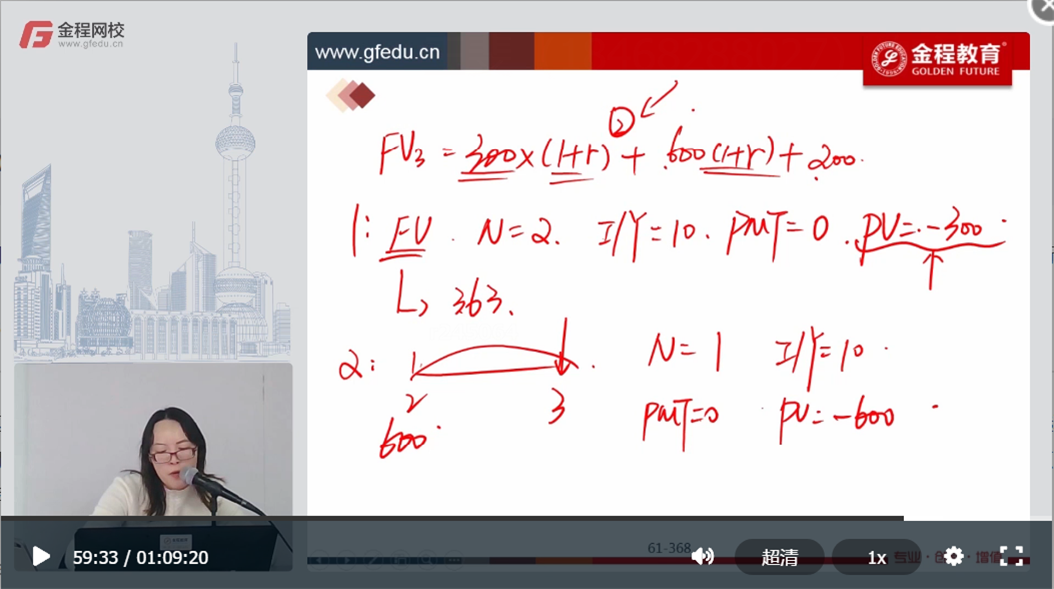 金程网校
www.gfedu.cn
www.gfedu.cn
金程教育®
GOLDEN FUTURE
②
FV₃ = 300×(1+r) + 600(1+r) + 200.
1: FV. N=2. I/Y=10. PMT=0. PV=-300
↳ 363.
2: N=1 I/Y=10
2 3 PMT=0 PV=-600
600
61-368
59:33 / 01:09:20
超清
1x
专业·创新·增值